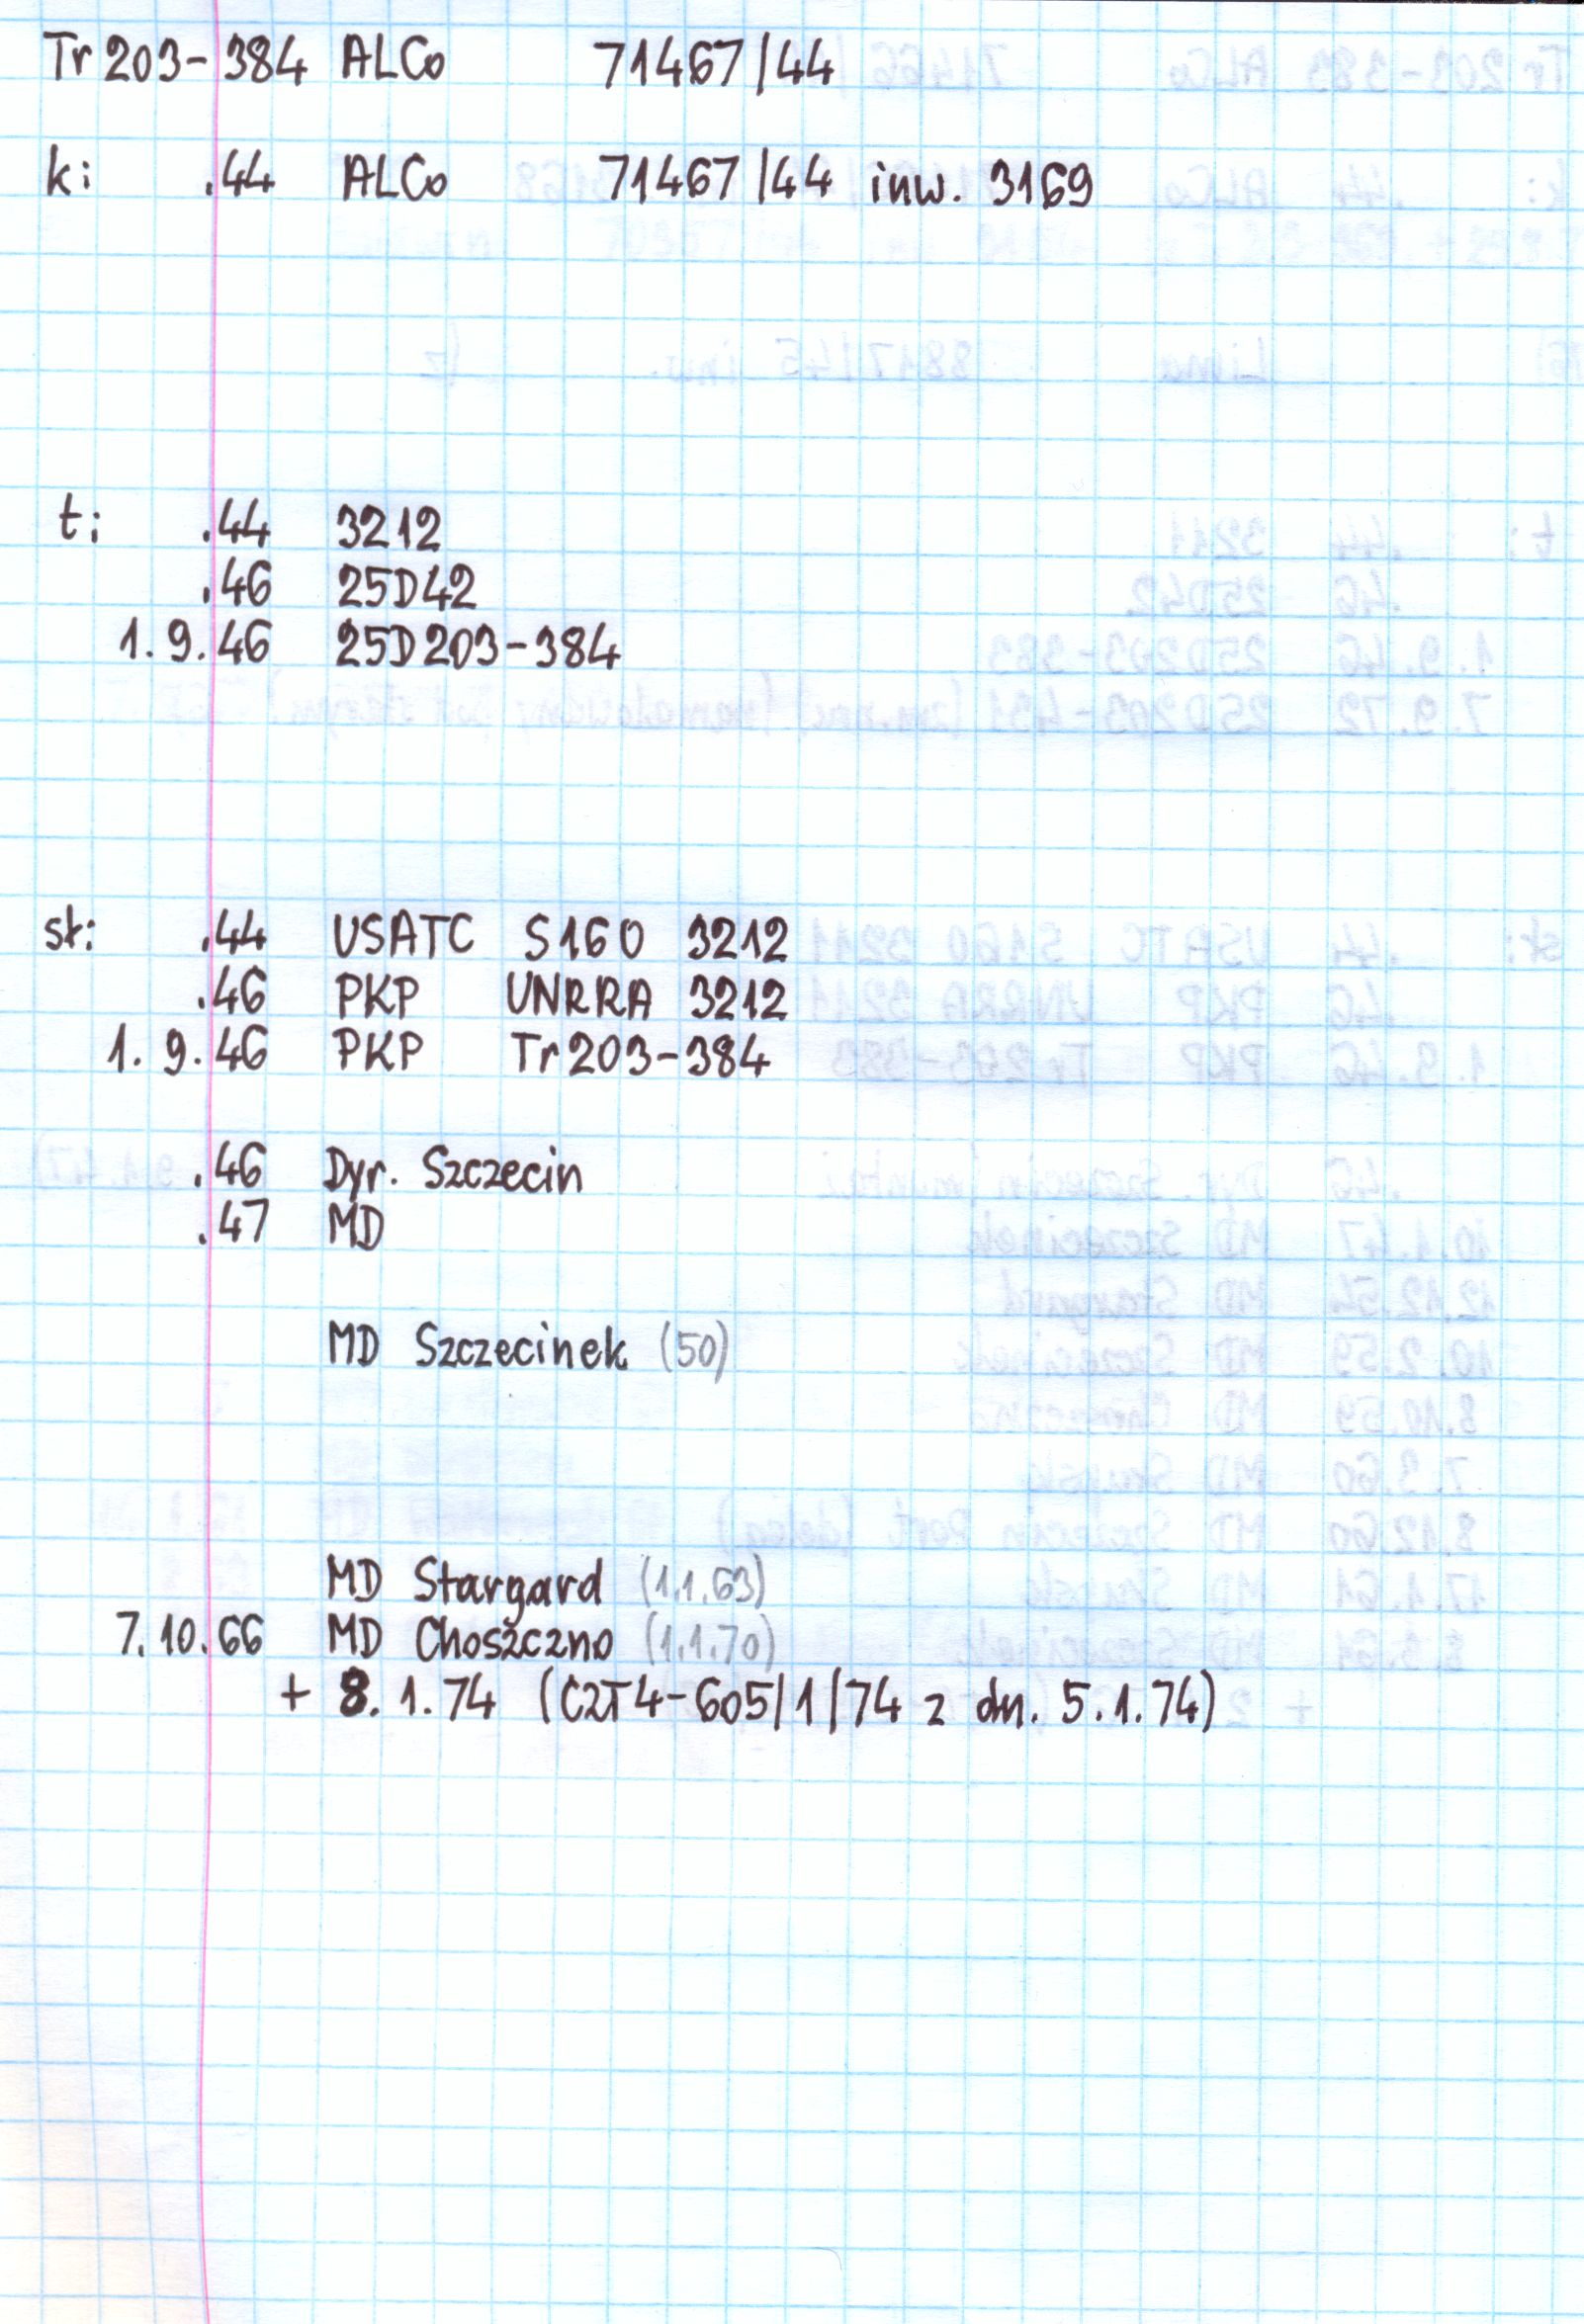 Tr 203-384 ALCo 71467/44
k: .44 ALCo 71467/44 inw. 3169
t: .44 3212
.46 25D42
1.9.46 25D203-384
sł: .44 USATC S160 3212
.46 PKP UNRRA 3212
1.9.46 PKP Tr203-384
.46 Dyr. Szczecin
.47 MD
MD Szczecinek (50)
MD Stargard (1.1.63)
7.10.66 MD Choszczno (1.1.70)
+ 8.1.74 (CZT4-605/1/74 z dn. 5.1.74)